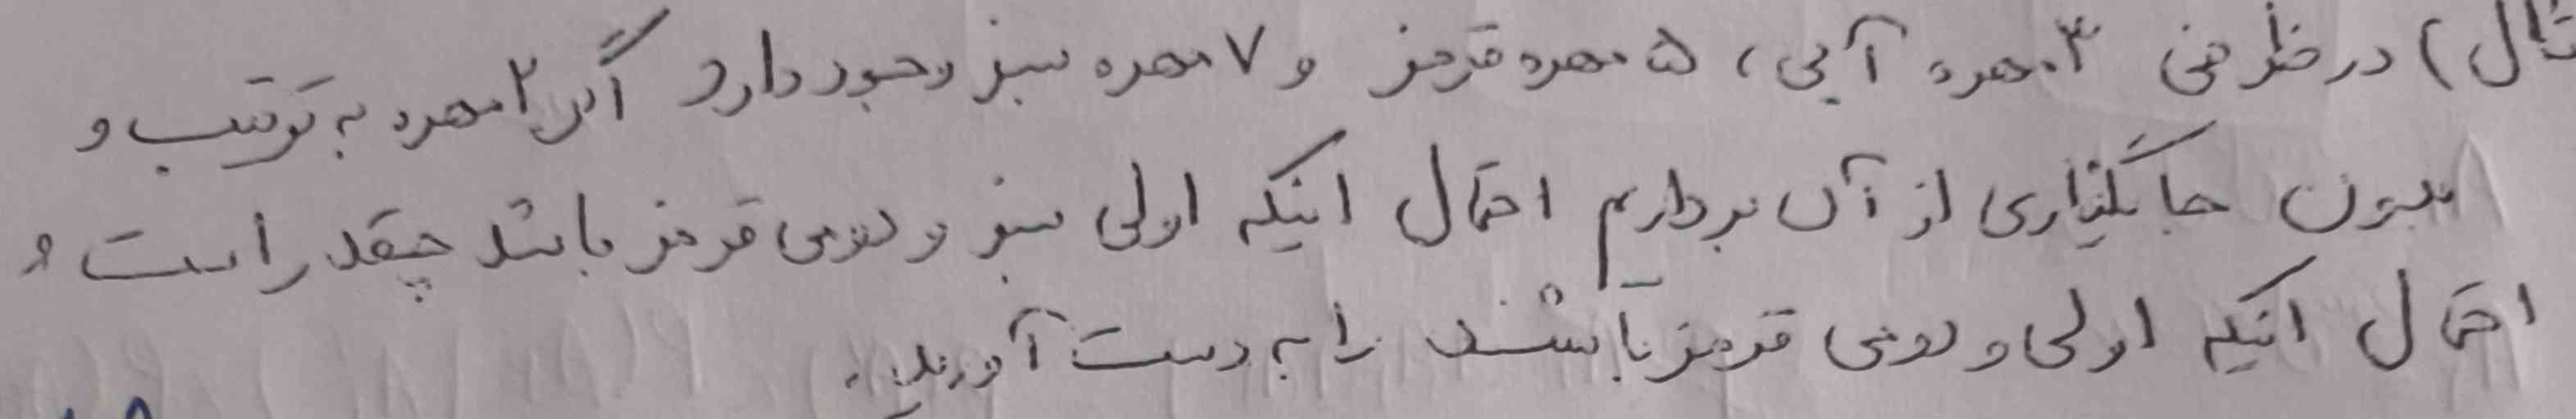 مثال) در ظرفی ۳ مهره آبی، ۵ مهره قرمز و ۷ مهره سبز وجود دارد اگر ۲ مهره به ترتیب و
بدون جایگذاری از آن برداریم احتمال اینکه اولی سبز و دومی قرمز باشد چقدر است و
احتمال اینکه اولی و دومی قرمز باشند را به دست آورید.